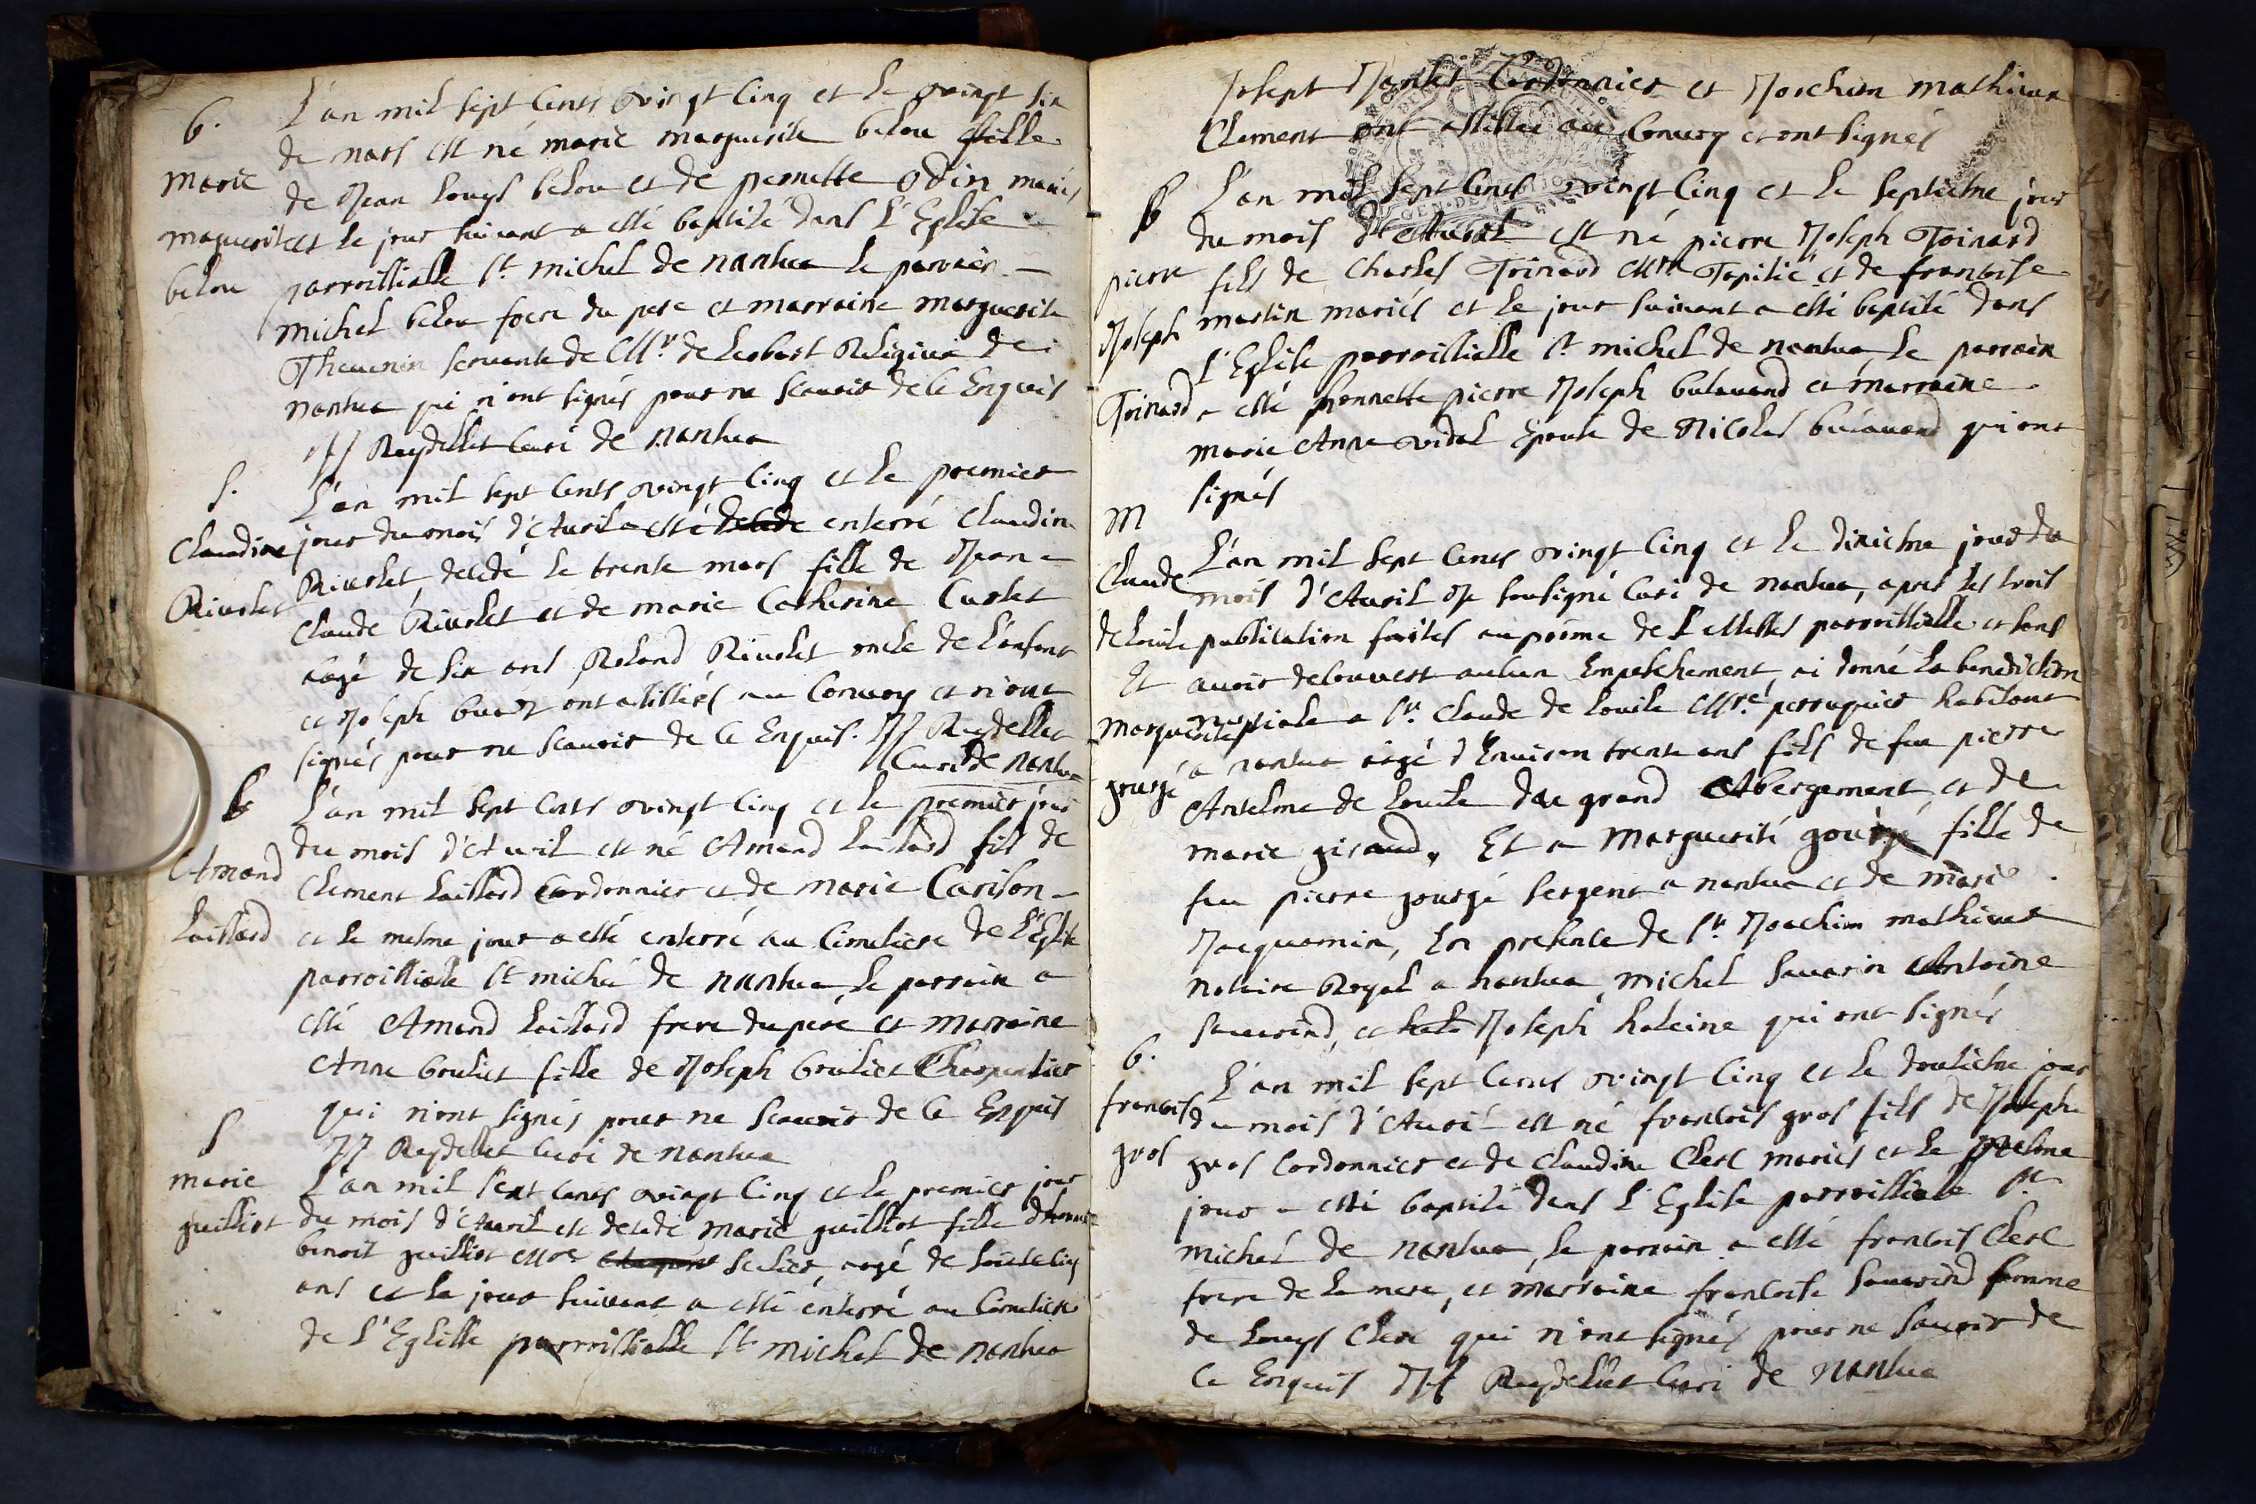 b.
Marie
marguerite
belou
L'an mil sept cents vingt cinq et le vingt six
de mars est né marie marguerite belou fille
de Jean Louys belou et de pernette Odin mariés
et le jour suivant a esté baptisé dans L'Eglise
parroissialle St michel de nantua le parrain
michel belou frere du pere et marraine marguerite
Thevenin servante de Mr de Leobert Religieux de
nantua qui n'ont signés pour ne scavoir de ce Enquis
JJ Reydellet Curé de nantua
S.
Claudine
Rivolet
L'an mil sept cents vingt cinq et le premier
jour du mois d'Avril a esté enterré Claudine
Rivolet, decedé le trente mars fille de Jean
Claude Rivolet et de marie Catherine Curlet
aagé de six ans Roland Rivolet oncle de L'enfant
et Joseph ont assistés au Convoy et n'ont
signés pour ne scavoir de ce Enquis. JJ Reydellet
Curé de nantua
b
Amand
Laillard
L'an mil sept cents vingt cinq et le premier jour
du mois d'Avril est né Amand Laillard fils de
Clement Laillard Cordonnier et de marie Carison
et le mesme jour a esté enterré au Cimetiere de L'Eglise
parroissialle St michel de nantua, le parrain a
esté Amand Laillard frere du pere et marraine
Anne bouliet fille de Joseph bouliet Charpentier
qui n'ont signés pour ne scavoir de ce Enquis
JJ Reydellet Curé de nantua
S
marie
guilliot
L'an mil sept cents vingt cinq et le premier jour
du mois d'Avril est decedé marie guilliot fille d'honnete
benoit guilliot Mre Selier, aagé de soixte cinq
ans et le jour suivant a esté enterré au Cimetiere
de L'Eglise parroissialle St michel de nantua
Joseph Cordonnier et Joachim mathieu
Clement ont assistés au Convoy et ont signés
b
pierre
Joseph
Toinard
L'an mil sept cents vingt cinq et le septiesme jour
du mois d'Avril est né pierre Joseph Toinard
fils de Charles Toinard Mre Tapissié et de francoise
martin mariés et le jour suivant a esté baptisé dans
l'Eglise parroissialle St michel de nantua, le parrain
a esté honnette pierre Joseph butavand et marraine
marie Anne vidal Epouse de Nicolas butavand qui ont
signés
M
Claude
de Louile
Et
marguerite
gourgé
L'an mil sept cents vingt cinq et le dixiesme jour du
mois d'Avril Je sousigné Curé de nantua, apres les trois
publication faites au prosme de L Messes parroissialle et sans
avoir descouvert aucun Empeschement, ai donné la benediction
nuptiale a Sr Claude de Louile Mre perruquier habitant
a nantua aagé d'Environ trente ans fils de feu pierre
Antelme de Louile du grand Abergement et de
marie giraud, Et a Marguerité gourgé fille de
feu pierre gourgé sergent a nantua et de marie
Jacquemin, En presence de Sr Joachim mathieu
notaire Royal a nantua, michel Savarin Antoine
Savarind, et Joseph haleine qui ont signés
b.
francois
gros
L'an mil sept cents vingt cinq et le douziesme jour
du mois d'Avril est né francois gros fils de Joseph
gros Cordonnier et de Claudine Clerc mariés et le mesme
jour a esté baptisé dans L'Eglise parroissialle St
michel de nantua, le parrain a esté francois Clerc
frere de la mere, et marraine francoise Savarind femme
de Louys Clerc qui n'ont signés pour ne scavoir de
ce Enquis JJ Reydellet Curé de nantua